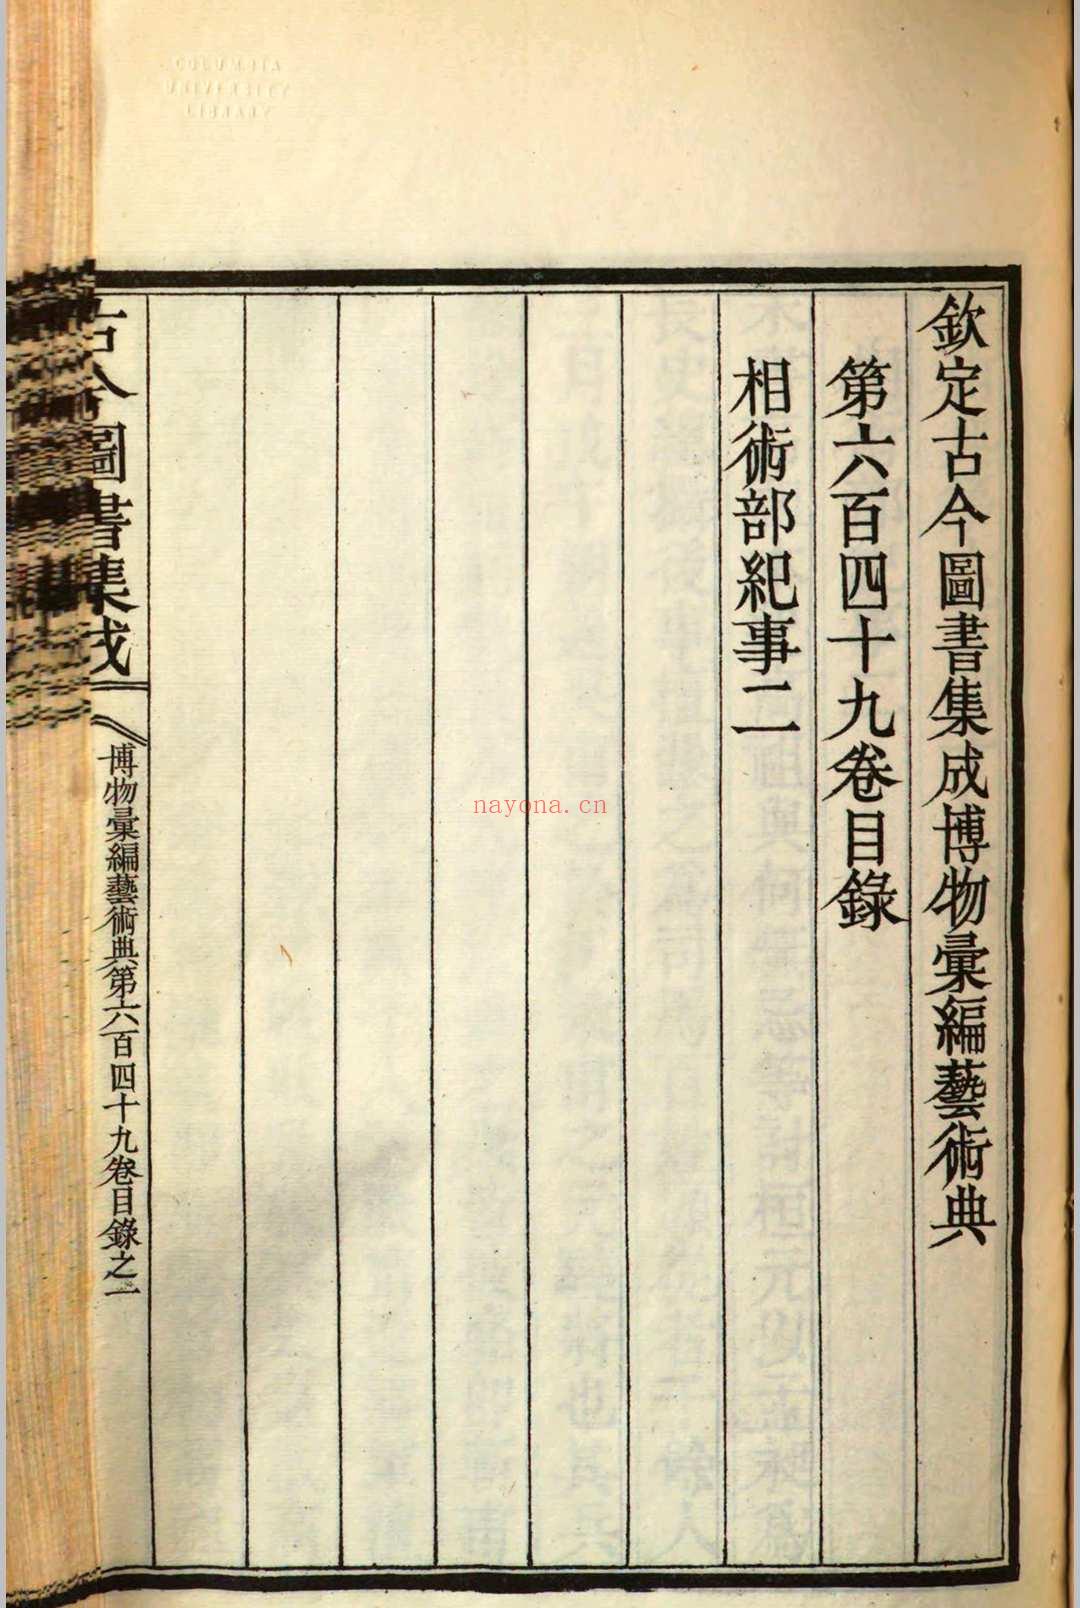 欽定古今圖書集成博物彙編藝術典
第六百四十九卷目錄
相術部紀事二
古今圖書集成
博物彙編藝術典第六百四十九卷目錄之一
COLUMBIA
UNIVERSITY
LIBRARY
nayona.cn